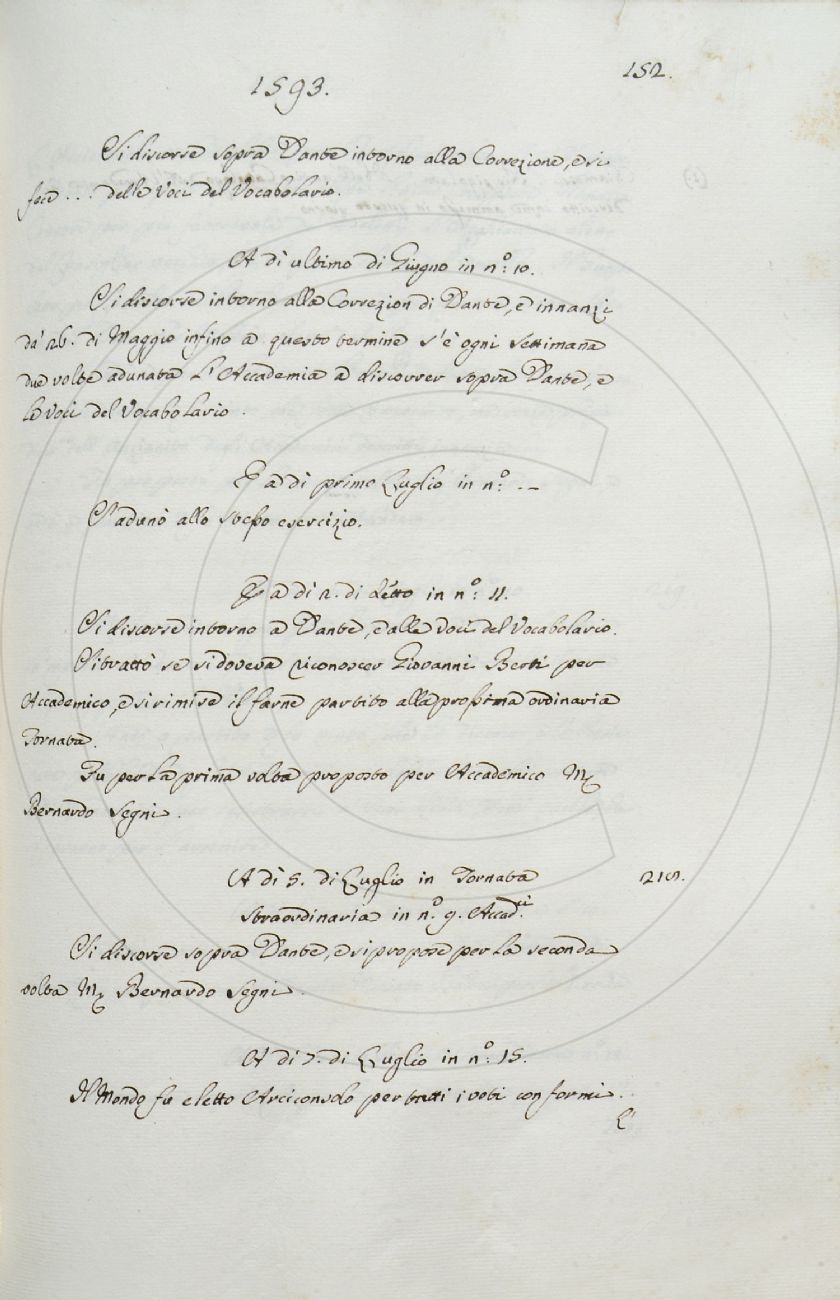 1593.
152.
Si discorse sopra Dante intorno alla Correzione, e si
fece ... delle Voci del Vocabolario.
A dì ultimo di Giugno in n.º: 10.
Si discorse intorno alla Correzion di Dante, e innanzi
da' 26. di Maggio infino a questo termine s'è ogni settimana
due volte adunata l'Accademia a discorrer sopra Dante, e
le Voci del Vocabolario.
E a dì primo Luglio in n.º: . –
S'adunò allo stesso esercizio.
E a dì 2. di detto in n.º: 11.
Si discorse intorno a Dante, e alle Voci del Vocabolario.
Si trattò se si doveva riconoscer Giovanni Berti per
Accademico, e si rimise il farne partito alla prossima ordinaria
Tornata.
Fu per la prima volta proposto per Accademico M.
Bernardo Segni.
A dì 5. di Luglio in Tornata
straordinaria in n.º 9. Accad.ci
Si discorse sopra Dante, e si propose per la seconda
volta M. Bernardo Segni.
A dì 7. di Luglio in n.º: 15.
Il Mondo fu eletto Arciconsolo per tutti i voti conformi.
L'